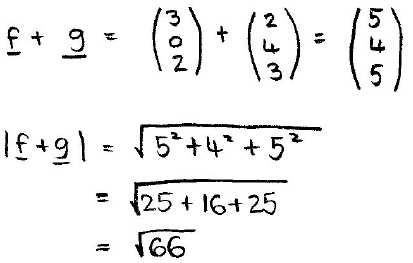 f + g = (3 0 2) + (2 4 3) = (5 4 5)
|f + g| = √5² + 4² + 5²
= √25 + 16 + 25
= √66